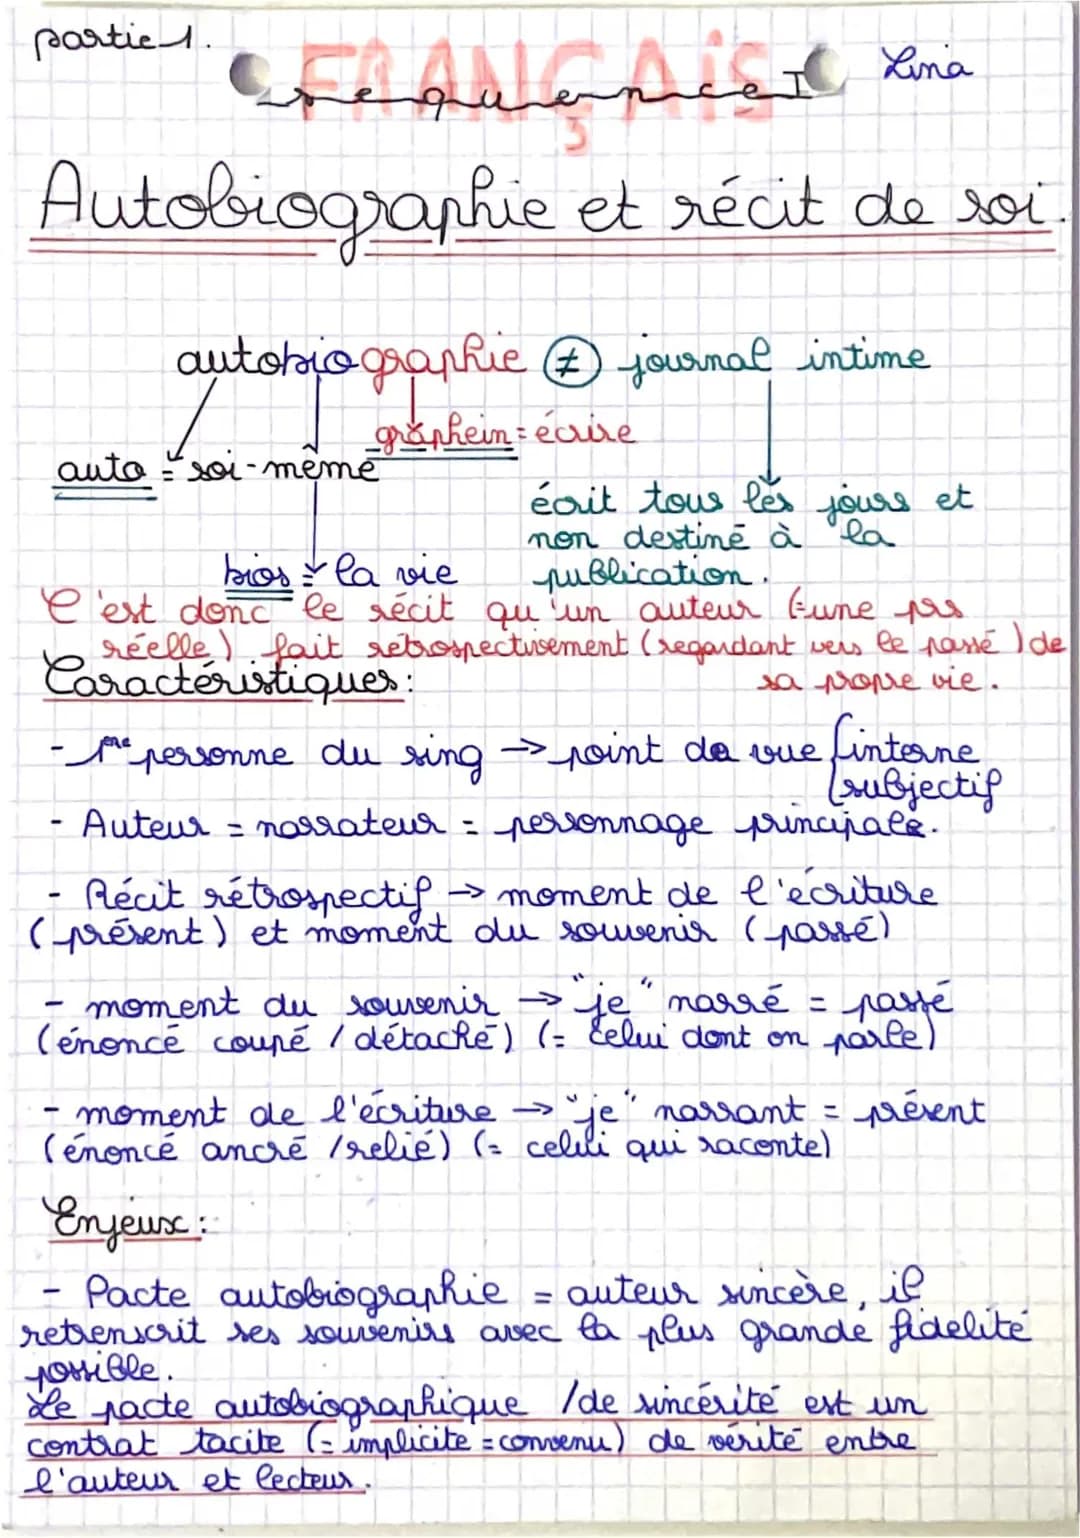 partie 1.
FRANÇAiS
Lina
séquence I
Autobiographie et récit de soi.
autobiographie ≠ journal intime
graphein = écrire
auto = soi-même
écrit tous les jours et
non destiné à la
publication.
bios = la vie
C'est donc le récit qu'un auteur (=une prs
réelle) fait rétrospectivement (regardant vers le passé) de
sa propre vie.
Caractéristiques :
- 1ère personne du sing → point de vue { interne
subjectif
- Auteur = narrateur = personnage principale.
- Récit rétrospectif → moment de l'écriture
(présent) et moment du souvenir (passé)
- moment du souvenir → "je" narré = passé
(énoncé coupé / détaché) (= celui dont on parle)
- moment de l'écriture → "je" narrant = présent
(énoncé ancré /relié) (= celui qui raconte)
Enjeux :
- Pacte autobiographie = auteur sincère, il
retrenscrit ses souvenirs avec la plus grande fidelité
possible.
Le pacte autobiographique /de sincérité est un
contrat tacite (= implicite = convenu) de vérité entre
l'auteur et lecteur.